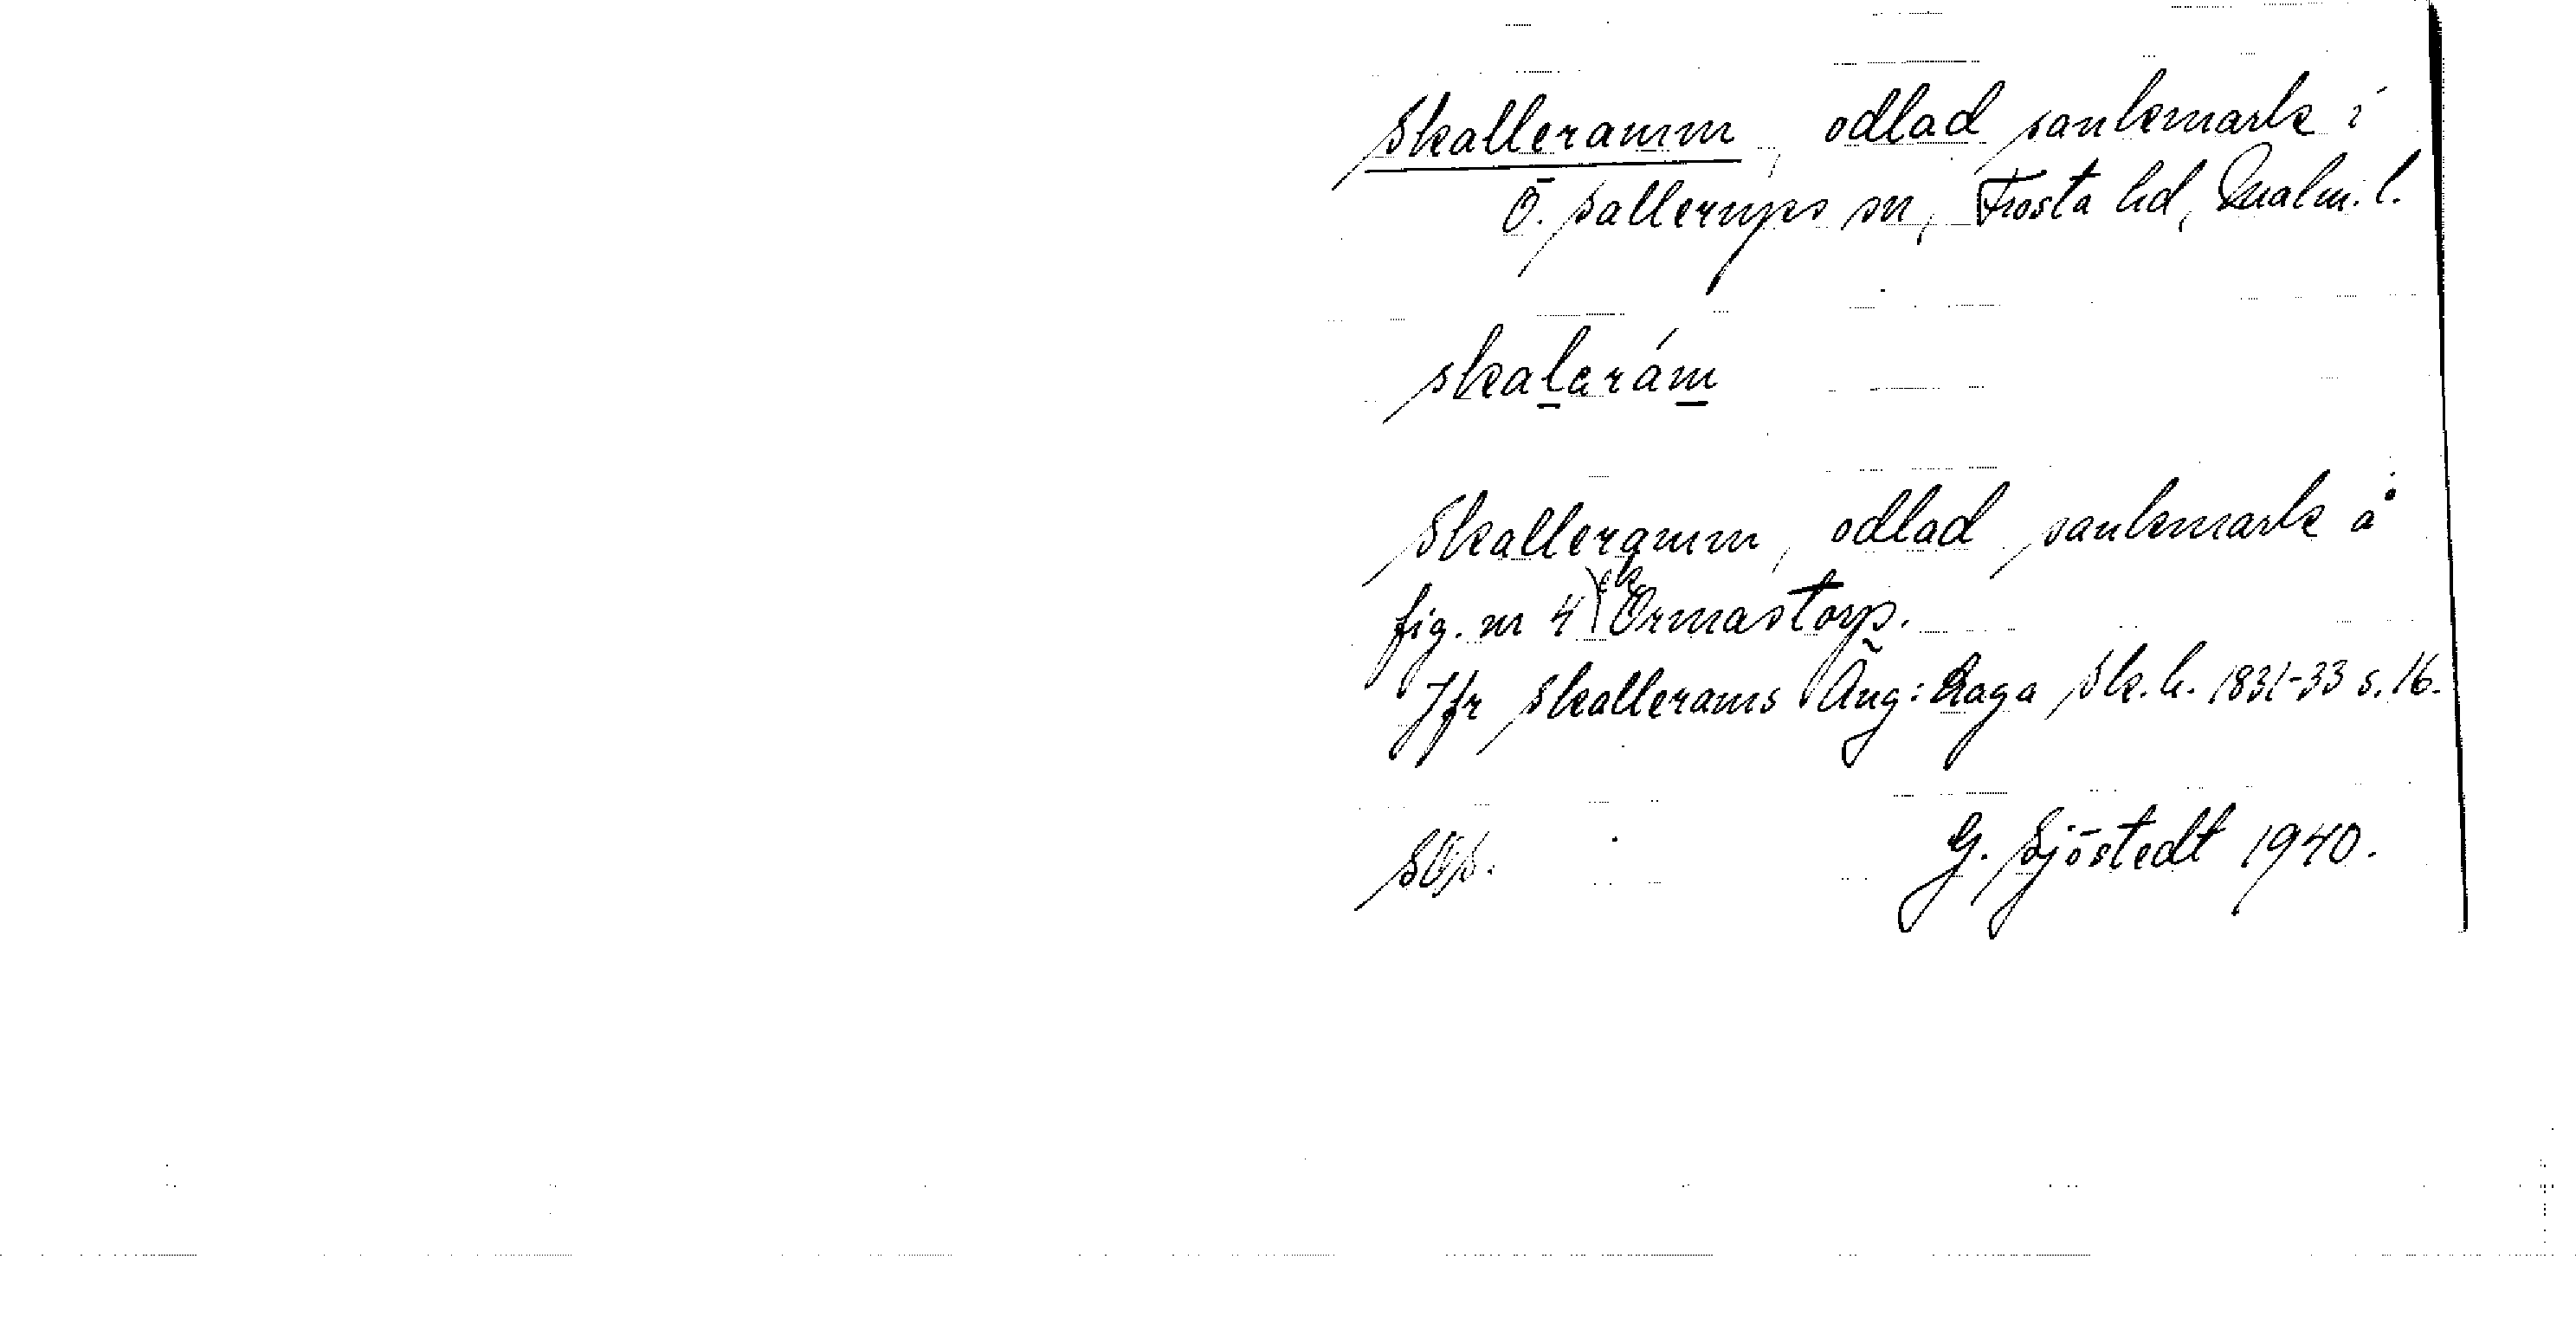 Skalleramm, odlad sankmark i
Ö. Sallerups sn, Frosta hd, Malm. l.
skalarám
Skalleramm, odlad sankmark å
fig. nr 4 Ormastorp.
Jfr Skallerams Äng: Laga Sk. h. 1831-33 s. 16.
SOS.
G. Sjöstedt 1940.